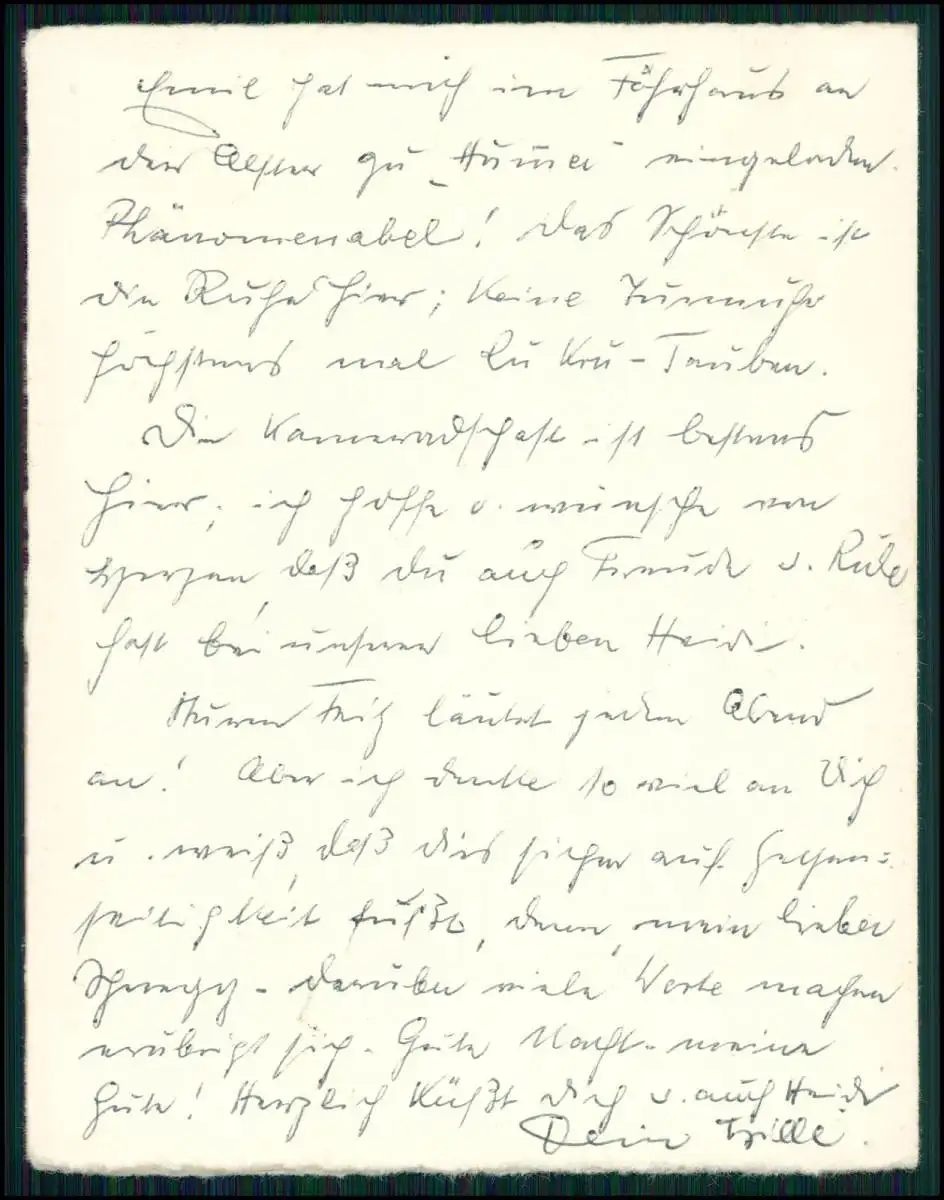 Emil hat mich im Fährhaus an
der Alster zu "Hummer" eingeladen.
Phänomenabel! Das Schönste ist
die Ruhe hier; keine Turmuhr
höchstens mal Ru Kru-Tauben.
Die Kameradschaft ist bestens
hier; ich hoffe u. wünsche von
Herzen, daß du auch Freude u. Ruhe
hast bei unserer lieben Heidi.
Fritz läutet jeden Abend
an! Aber ich denke so viel an Dich
u. weiß, daß dies sicher auf Gegen=
seitigkeit fußt, denn, mein lieber
- darüber viele Worte machen
erübrigt sich. Gute Nacht - meine
Gute! Herzlich küßt dich u. auch Heidi
Dein